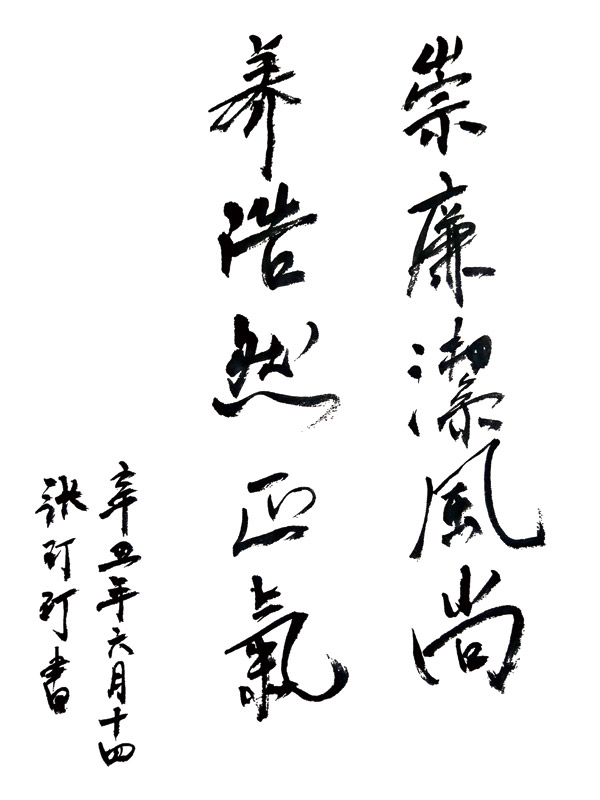 崇廉潔風尚
养浩然正氣
辛丑年六月十四
張玎玎書